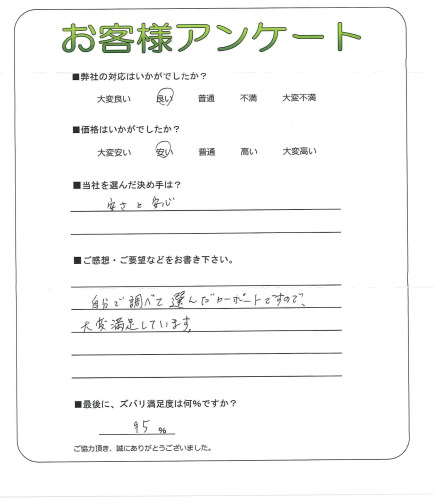 お客様アンケート
■弊社の対応はいかがでしたか？
大変良い 良い 普通 不満 大変不満
■価格はいかがでしたか？
大変安い 安い 普通 高い 大変高い
■当社を選んだ決め手は？
安さと安心
■ご感想・ご要望などをお書き下さい。
自分で調べて選んだカーポートですので、
大変満足しています。
■最後に、ズバリ満足度は何%ですか？
95 %
ご協力頂き、誠にありがとうございました。